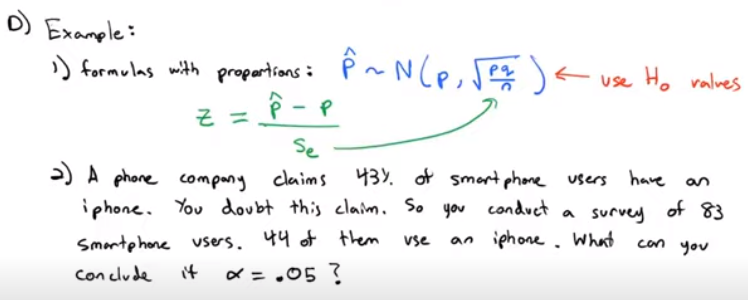 D) Example:
1) formulas with proportions: p̂ ~ N(p, √(pq/n)) ← use H₀ values
z = (p̂ - p)/Se
2) A phone company claims 43% of smartphone users have an
iphone. You doubt this claim. So you conduct a survey of 83
Smartphone users. 44 of them use an iphone. What can you
conclude if α = .05?